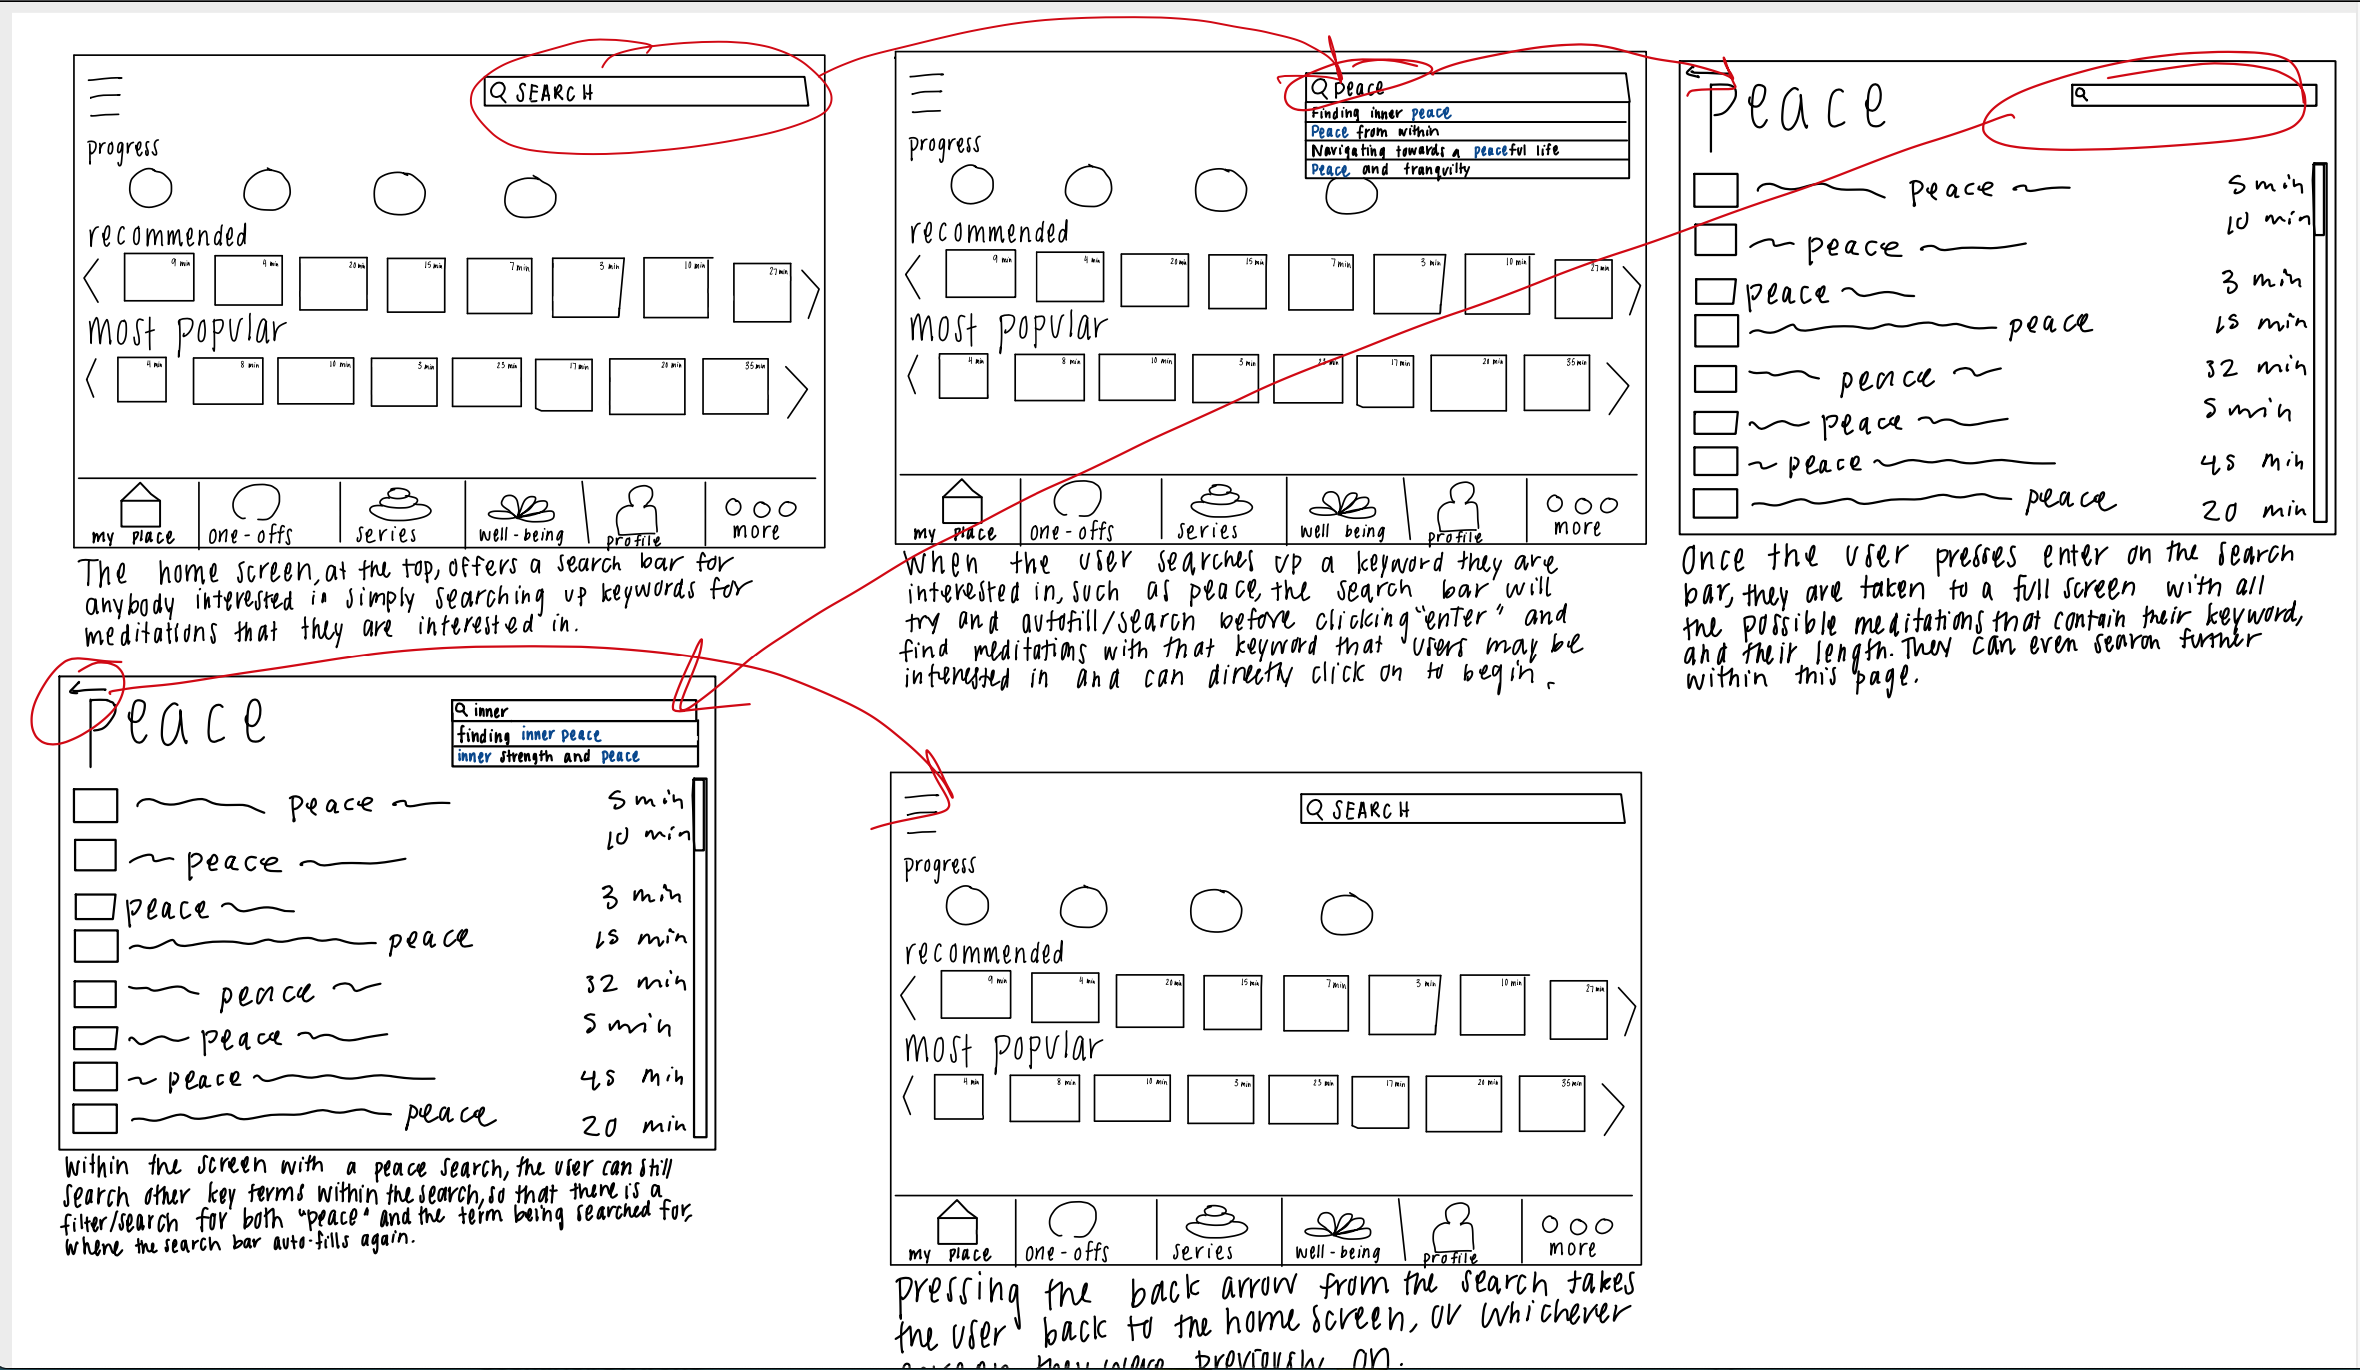 SEARCH
progress
recommended
9 min 4 min 20 min 15 min 7 min 3 min 10 min 27 min
most popular
4 min 8 min 10 min 3 min 23 min 17 min 20 min 35 min
my place one-offs series well-being profile more
The home screen, at the top, offers a search bar for
anybody interested in simply searching up keywords for
meditations that they are interested in.
peace
Finding inner peace
Peace from within
Navigating towards a peaceful life
Peace and tranquilty
progress
recommended
9 min 4 min 20 min 15 min 7 min 3 min 10 min 27 min
most popular
4 min 8 min 10 min 3 min 23 min 17 min 20 min 35 min
my place one-offs series well being profile more
When the user searches up a keyword they are
interested in, such as peace, the search bar will
try and autofill/search before clicking "enter" and
find meditations with that keyword that users may be
interested in and can directly click on to begin.
Peace
peace 5 min
peace 10 min
peace 3 min
peace 15 min
peace 32 min
peace 5 min
peace 45 min
peace 20 min
Once the user presses enter on the search
bar, they are taken to a full screen with all
the possible meditations that contain their keyword,
and their length. They can even search further
within this page.
Peace
inner
finding inner peace
inner strength and peace
peace 5 min
peace 10 min
peace 3 min
peace 15 min
peace 32 min
peace 5 min
peace 45 min
peace 20 min
Within the screen with a peace search, the user can still
search other key terms within the search, so that there is a
filter/search for both "peace" and the term being searched for,
where the search bar auto-fills again.
SEARCH
progress
recommended
9 min 4 min 20 min 15 min 7 min 3 min 10 min 27 min
most popular
4 min 8 min 10 min 3 min 23 min 17 min 20 min 35 min
my place one-offs series well-being profile more
Pressing the back arrow from the search takes
the user back to the home screen, or whichever
they were previously on.